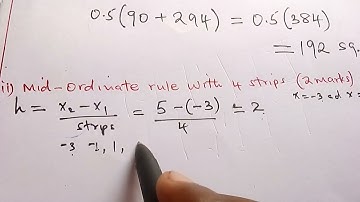 0.5(90 + 294) = 0.5(384)
= 192 sq.
ii) Mid-ordinate rule with 4 strips (2marks)
x=-3 and x=
h = x₂ - x₁ / strps = 5 - (-3) / 4 = 2
-3 -1, 1,